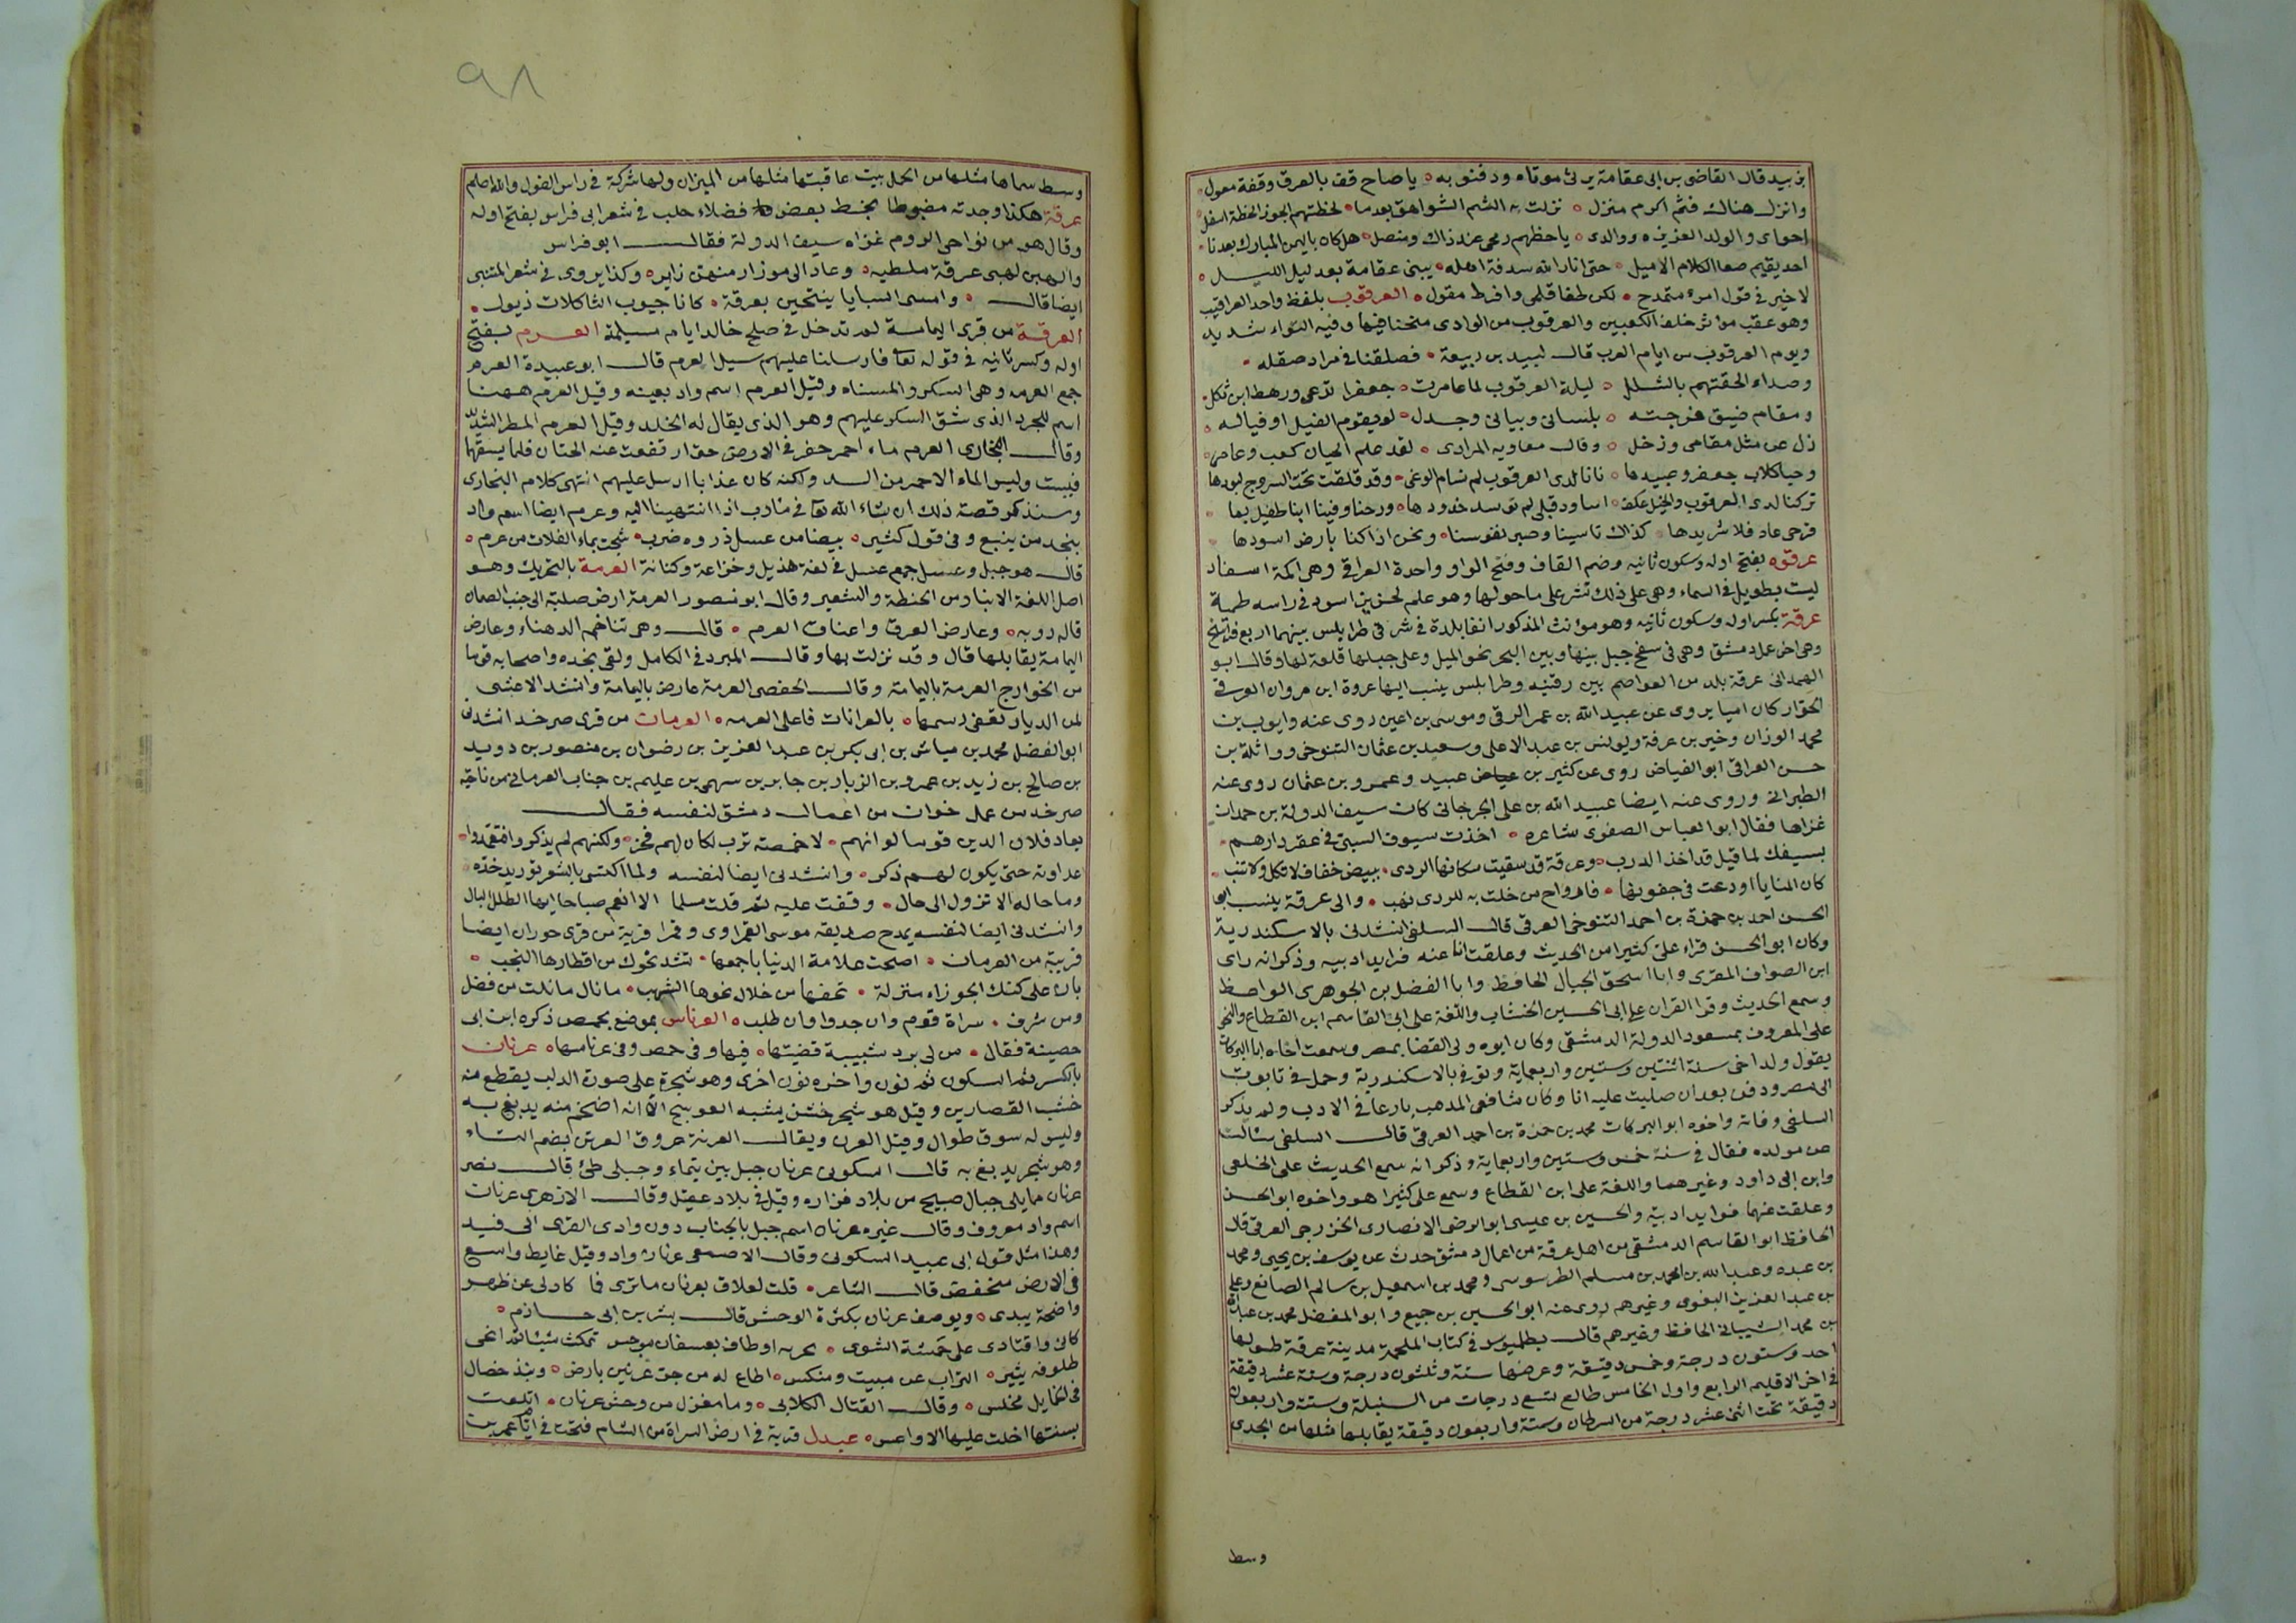 بزبيد قال القاضى بن ابى عقامة يرثى موتاه ودفنو به ٥ يا صاح قف بالعرق وقفة معول ٥
وانزل هناك فثم اكرم منزل ٥ نزلت به الشم الشواهق بعدما ٥ لحظتهم الجوز الحظة اسفل
اخواى والولد العزيز ووالدى ٥ يا حطهم رمحى عند ذاك ومنصل ٥ هل كان باليمن المبارك بعدنا
احد يقيم صعا الكلام الاميل ٥ حتى انار الله سدفة اهله ٥ ببنى عقامة بعد ليل اليل ٥
لا خير فى قول امرء متمدح ٥ لكن طغا قلمى وافرط مقول ٥ العرقوب بلفظ واحد العراقيب
وهو عقب موثر خلف الكعبين والعرقوب من الوادى منحنا فيها وفيه التواء شديد
ويوم العرقوب من ايام العرب قال لبيد بن ربيعة ٥ فصلقنا فى مراد صقله ٥
وصداء الحقتهم بالشلل ٥ ليلة العرقوب لما عامرت ٥ جعفرا تدعى ورهط ابن شكل
ومقام ضيق فرجته ٥ بلسانى وبيانى وجدل ٥ لو يقوم الفيل او فياله ٥
زل عن مثل مقامى وزحل ٥ وقال معاويه المرادى ٥ لقد علم الحيان كعب وعامر ٥
وحيا كلاب جعفر وعبيدها ٥ بانا لدى العرقوب لم نسام الوغى ٥ وقد قلقت تحت السروج لبودها
تركنا لدى العرقوب والخيل عكف ٥ اساود قبلى لم توسد خدودها ٥ ورحنا وفينا ابنا طفيل بغا
قرحى عاد فلا شريدها ٥ كذاك تاسينا وصبر نفوسنا ٥ ونحن اذا كنا بارض اسودها
عرقوه بفتح اوله وسكون ثانيه وضم القاف وفتح الواو واحدة العراقى وهى اكمة اسفاد
ليت بطويل فى السماء وهى على ذلك تشرف على ما حولها وهو علم لحزيز اسود فى راسه طمية
عرقة بكسر اوله وسكون ثانيه وهو مونث المذكور انفا بلدة فى شرقى طرابلس بينهما اربع فراسخ
وهى اخر عمل دمشق وهى فى سفح جبل بينها وبين البحر نحو الميل وعلى جبلها قلعة لها وقال ابو
الهمدانى عرقة بلد من العواصم بين رفنيه وطرابلس ينسب اليها عروة ابن مروان العرقى
الجرار كان اميا يروى عن عبيد الله بن عمر الرقى وموسى بن اعين روى عنه وايوب بن
محمد الوزان وخير بن عرفة ويونس بن عبد الاعلى وسعيد بن عثمان التنوخى وواثلة بن
حسن العراقى ابو الفياض روى عن كثير بن عبيد وعمرو بن عثمان روى عنه
الطبرانى وروى عنه ايضا عبيد الله بن على الجرجانى كان سيف الدولة بن حمدان
غزاها فقال ابو العباس الصفرى شاعره ٥ اخذت سيوف السبى فى عقر دارهم ٥
بسيفك لما قيل قد اخذ الدرب ٥ وعرقة قد سقيت سكانها الردى ٥ ببيض خفاف لا تكل ولا تنب
كان المنايا اودعت فى جفونها ٥ فارواح من خلت به للردى نهب ٥ والى عرقة ينسب ابى
الحسن احمد بن حمزة بن احمد التنوخى العرقى قال السلفى انشدنى بالاسكندرية
وكان ابو الحسن قراء على كثيرا من الحديث وعلقت انا عنه فرايد ادبيه وذكر انه راى
ابن الصواف المقرى وابا اسحق الحبال الحافظ وابا الفضل بن الجوهرى الواعظ
وسمع الحديث وقرا القران على ابى الحسين الخشاب واللغة على ابى القاسم ابن القطاع والنحو
على المعروف بمسعود الدولة الدمشقى وكان ابوه ولى القضا بمصر وسمعت اخاه ابا البركات
يقول ولد اخى سنة اثنتين وستين واربعماية وتوفى بالاسكندرية وحمل فى تابوت
الى مصر ودفن بعد ان صليت عليه انا وكان شافعى المذهب بارعا فى الادب ولم يذكر
السلفى وفاته واخوه ابو البركات محمد بن حمزة بن احمد العرقى قال السلفى سالته
عن مولده فقال فى سنة خمس وستين واربعماية وذكر انه سمع الحديث على الخلعى
وابن ابى داود وغيرهما واللغة على ابن القطاع وسمع على كثيرا هو واخوه ابو الحسن
وعلقت عنهما فوايد ادبية والحسين بن عيسى ابو الرضى الانصارى الخزرجى العرقى قال
الحافظ ابو القاسم الدمشقى من اهل عرقة من اعمال دمشق حدث عن يوسف بن يحيى ومحمد
بن عبده وعبد الله بن احمد بن مسلم الطرسوسى ومحمد بن اسمعيل بن سالم الصانع وعلى
بن عبد العزيز البغوى وغيرهم روى عنه ابو الحسين بن جميع وابو المفضل محمد بن عبد الله
بن محمد الشيبانى الحافظ وغيرهم قال بطلميوس فى كتاب الملحمة مدينة عرقة طولها
احد وستون درجة وخمس دقيقة وعرضها ستة وثلثون درجة وستة عشر دقيقة
فى اخر الاقليم الرابع واول الخامس طالع تسع درجات من السنبلة وستة واربعون
دقيقة تحت اثنى عشر درجة من السرطان وستة واربعون دقيقة يقابلها مثلها من الجدى
وسط
٩٨
وسط سماها مثلها من الحمل بيت عاقبتها مثلها من الميزان ولها شركة فى راس الغول والله اعلم
عرقة هكذا وجدته مضبوطا بخط بعض فضلاء حلب فى شعر ابى فراس بفتح اوله
وقال هو من نواحى الروم غزاه سيف الدولة فقال ابو فراس
والهبن لهبى عرقة ملطيه ٥ وعاد الى موزار منهن زاير ٥ وكذا يروى فى شعر المتنبى
ايضا قال ٥ وامسى السبايا ينتحبن بعرقة ٥ كانا جيوب الثاكلات ذيول ٥
العرقة من قرى اليمامة لم تدخل فى صلح خالد ايام مسيلمة العرم بفتح
اوله وكسر ثانيه فى قوله تعالى فارسلنا عليهم سيل العرم قال ابو عبيدة العرم
جمع العرمه وهى السكر والمسناه وقيل العرم اسم واد بعينه وقيل العرم ههنا
اسم للجرد الذى شق السكر عليهم وهو الذى يقال له الخلد وقيل العرم المطر الشديد
وقال البخارى العرم ماء احمر حفر فى الارض حتى ارتفعت عنه الجنتان فلم يسقهما
فيبست وليس الماء الاحمر من السد ولكنه كان عذابا ارسل عليهم انتهى كلام البخارى
وسنذكر قصة ذلك ان شاء الله تعالى فى مارب اذا انتهينا اليه وعرم ايضا اسم واد
ينحدر من ينبع وفى قول كثير ٥ بيضا من عسل ذروه ضرب ٥ شجت بماء الفلاة من عرم ٥
قال هو جبل وعسل جمع عسل فى لغة هذيل وخزاعة وكنانة العرمة بالتحريك وهو
اصل اللغة الانبار من الحنطة والشعير وقال ابو منصور العرمة ارض صلبة الى جنب الصمان
قاله روبه ٥ وعارض العرق واعناق العرم ٥ قال وهى تناخم الدهناء وعارض
اليمامة يقابلها قال وقد نزلت بها وقال المبرد فى الكامل ولقى نجده واصحابه قوما
من الخوارج العرمة باليمامة وقال الحفصى العرمة عارض باليمامة وانشد الاعشى
لمن الديار تعفى رسمها ٥ بالعرانات فاعلى العرمه ٥ العرمان من قرى صرخد انشدنى
ابو الفضل محمد بن مياس بن ابى بكر بن عبد العزيز بن رضوان بن منصور بن دويد
بن صالح بن زيد بن عمرو بن الزبار بن جابر بن سهم بن عليم بن جناب العرمانى من ناحية
صرخد من عمل حوران من اعمال دمشق لنفسه فقال
يعاد فلان الدين قوما لو انهم ٥ لاخمصته ترب لكان لهم فخر ٥ ولكنهم لم يذكروا فتعمدوا
عداوته حتى يكون لهم ذكر ٥ وانشدنى ايضا لنفسه ولما اكتسى بالشعر توريد خده ٥
وما حاله الا تزول الى حال ٥ وقفت عليه ثم قلت مسلما الا انعم صباحا ايها الطلل البال
وانشدنى ايضا لنفسه يمدح صديقه موسى القمراوى وقمرا قرية من قرى حوران ايضا
قريبة من العرمان ٥ اصبحت علامة الدنيا باجمعها ٥ تشد نحوك من اقطارها النجب ٥
بان على كتك الجوزاء منزلة ٥ تحفها من خلال نحوها الشهب ٥ ما نال ما نلت من فضل
ومن شرف ٥ سراة قوم وان جدوا وان طلبه ٥ العرناس بموضع بحمص ذكره ابن ابى
حصينة فقال ٥ من لى برد شبيبة قضيتها ٥ فيها وفى حمص وفى عرناسها ٥ عرنان
بالكسر ثم السكون ثم نون واخره نون اخرى وهو شجرة على صورة الدلب يقطع منه
خشب القصارين وقيل هو شجر خشن يشبه العوسج الا انه اضخم منه يدبغ به
وليس له سوق طوال وقيل العرن ويقال العرنة عروق العرتن بضم التاء
وهو شجر يدبغ به قال السكونى عرنان جبل بين تيماء وجبلى طئ قال نصر
عرنان مما يلى جبال صبيح من بلاد فزاره وقيل فى بلاد عقيل وقال الازهرى عرنان
اسم واد معروف وقال غيره عرنان اسم جبل بالجناب دون وادى القرى الى فيد
وهذا مثل قول ابى عبيد السكونى وقال الاصمعى عرنان واد وقيل غايط واسع
فى الارض منخفض قال الشاعر ٥ قلت لعلاق بعرنان ما ترى فما كاد لى عن ظهر
واضحة يبدى ٥ ويوصف عرنان بكثرة الوحش قال بشر بن ابى حازم ٥
كانى واقتادى على حمشة الشوى ٥ بحربه او طاف بعسفان موجس تمكث شيئا ثم انحى
ظلوفه يثير ٥ التراب عن مبيت ومنكس ٥ اطاع له من جو عرنين بارض ٥ ونبذ خصال
فى الخمايل مخلس ٥ وقال القتال الكلابى ٥ وما مغزل من وحش عرنان ٥ اتلعت
بسنتها اخلت عليها الاواعس ٥ عبدل قرية فى ارض السراة من الشام فتحت فى ايام عمر بن